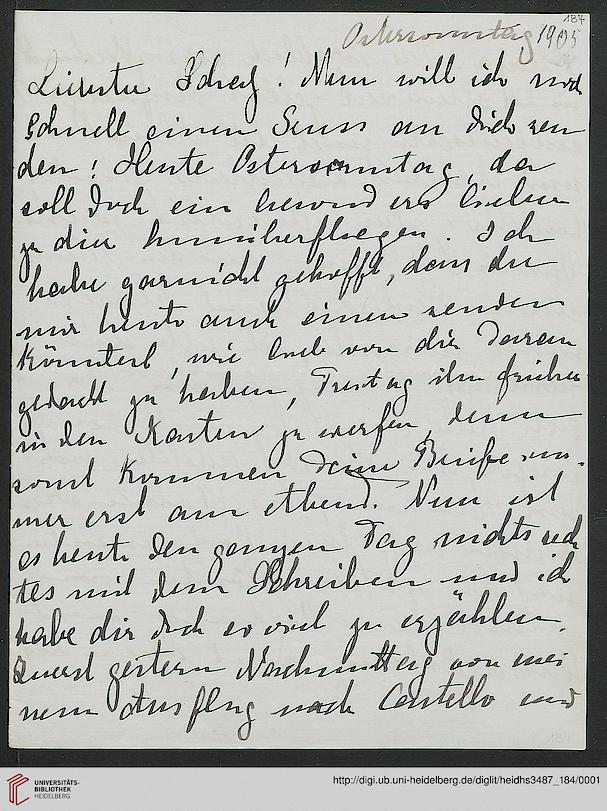 184
Ostersonntag 1905
Liebster Schatz! Nun will ich noch
schnell einen Gruss an dich sen
den! Heute Ostersonntag, da
soll doch ein besonderes
zu dir hinüberfliegen. Ich
habe garnicht gehofft, dass du
mir heute auch einen senden
könntest, wie lieb von dir daran
gedacht zu haben, Freitag ihn früher
in den Kasten zu werfen, denn
sonst kommen deine Briefe im-
mer erst am Abend. Nun ist
es heute den ganzen Tag nichts rech
tes mit dem Schreiben und ich
habe dir doch so viel zu erzählen.
Zuerst gestern Nachmittag von mei
nem Ausflug nach Castello und
UNIVERSITÄTS-
BIBLIOTHEK
HEIDELBERG
http://digi.ub.uni-heidelberg.de/diglit/heidhs3487_184/0001